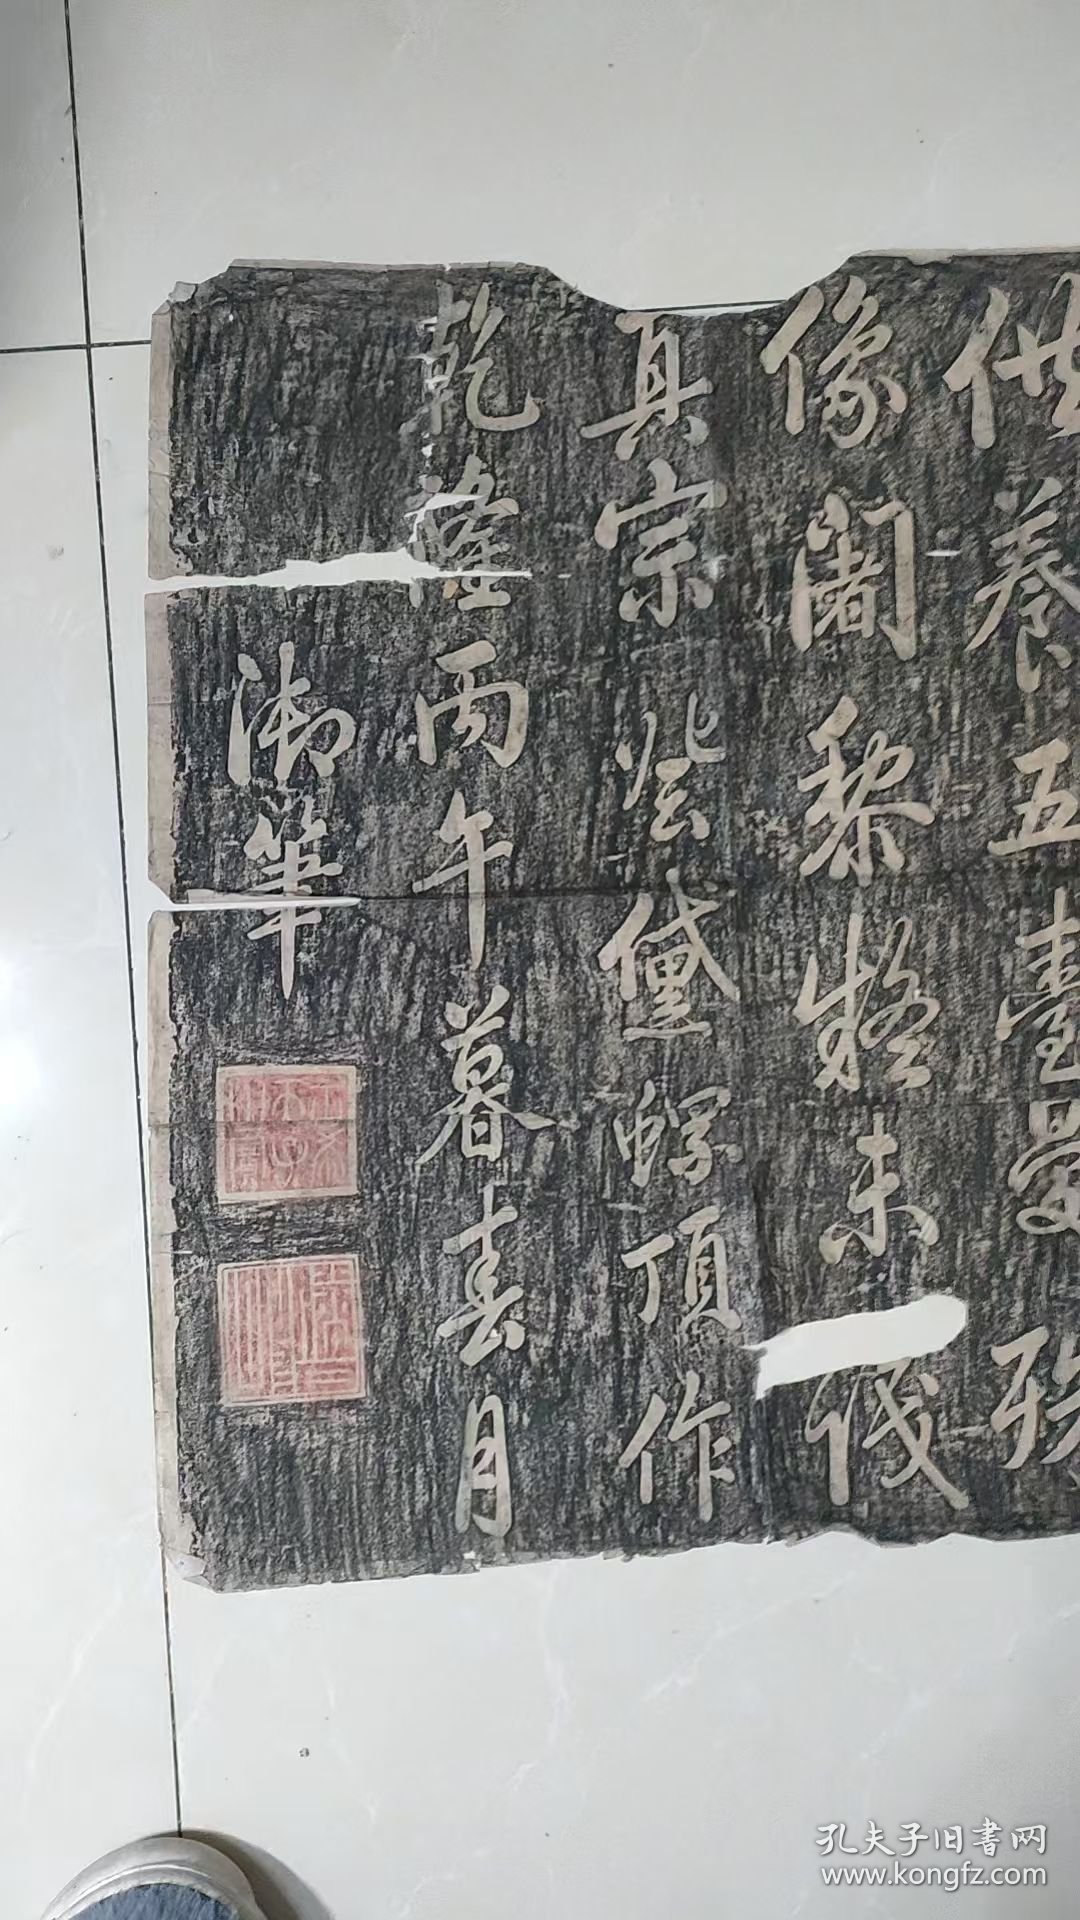 供養五臺曼殊
像闍黎擬未
真宗些黛螺頂作
乾隆丙午暮春月
御筆
孔夫子旧書网
www.kongfz.com